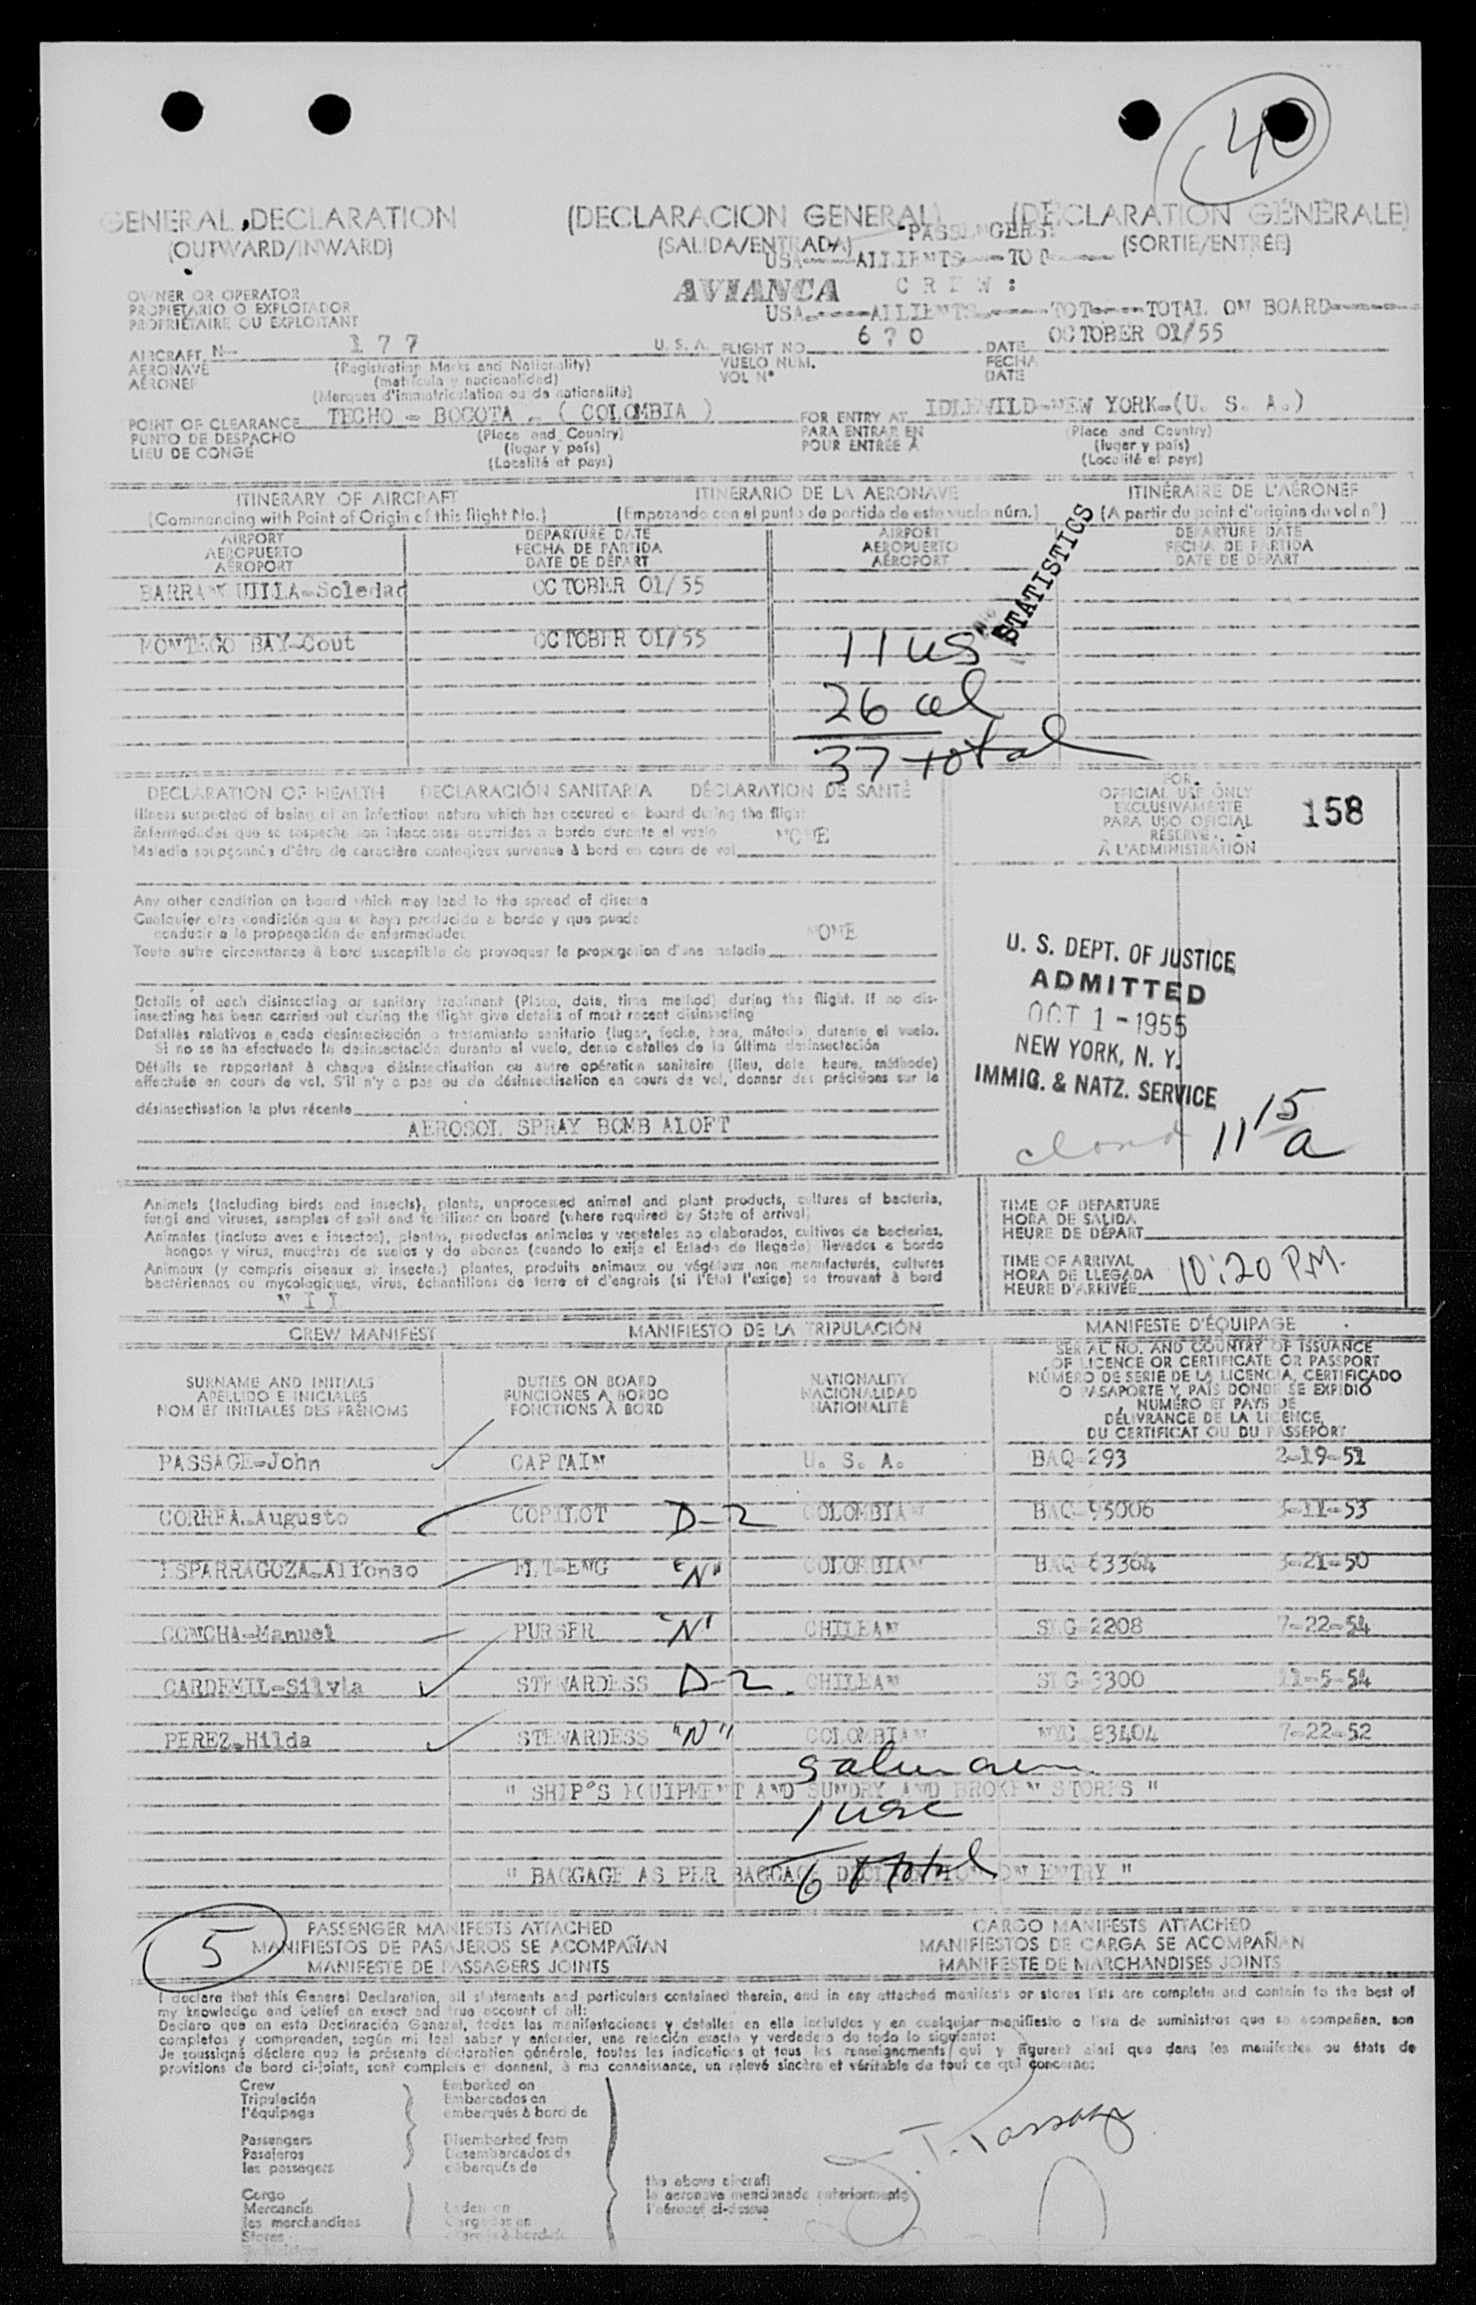 40
GENERAL DECLARATION (DECLARACION GENERAL) (DÉCLARATION GÉNÉRALE)
(OUTWARD/INWARD) (SALIDA/ENTRADA) PASSENGERS: (SORTIE/ENTRÉE)
USA ALLIENTS TOT
OWNER OR OPERATOR AVIANCA CREW:
PROPIETARIO O EXPLOTADOR
PROPRIÉTAIRE OU EXPLOITANT USA ALLIENTS TOT TOTAL ON BOARD
AIRCRAFT N- 177 U. S. A. FLIGHT NO. 670 DATE OCTOBER 01/55
AERONAVE (Registration Marks and Nationality) VUELO NUM. FECHA
AÉRONEF (matrícula y nacionalidad) VOL Nº DATE
(Marques d'immatriculation ou de nationalité)
POINT OF CLEARANCE TECHO - BOGOTA - ( COLOMBIA ) FOR ENTRY AT IDLEWILD-NEW YORK-(U. S. A.)
PUNTO DE DESPACHO (Place and Country) PARA ENTRAR EN (Place and Country)
LIEU DE CONGÉ (lugar y país) POUR ENTRÉE A (lugar y país)
(Localité et pays) (Localité et pays)
ITINERARY OF AIRCRAFT ITINERARIO DE LA AERONAVE ITINÉRAIRE DE L'AÉRONEF
(Commencing with Point of Origin of this flight No.) (Empezando con el punto de partida de este vuelo núm.) (A partir du point d'origine du vol nº)
AIRPORT DEPARTURE DATE AIRPORT DEPARTURE DATE
AEROPUERTO FECHA DE PARTIDA AEROPUERTO FECHA DE PARTIDA
AÉROPORT DATE DE DÉPART AÉROPORT DATE DE DÉPART
BARRANQUILLA-Soledad OCTOBER 01/55
STATISTICS
MONTEGO BAY-Cout OCTOBER 01/55 11 US
26 al
37 total
DECLARATION OF HEALTH DECLARACIÓN SANITARIA DÉCLARATION DE SANTÉ
FOR
OFFICIAL USE ONLY
EXCLUSIVAMENTE
PARA USO OFICIAL
RÉSERVÉ
À L'ADMINISTRATION
158
Illness suspected of being of an infectious nature which has occured on board during the flight
Enfermedades que se sospeche son infecciosas ocurridas a bordo durante el vuelo NONE
Maladie soupçonnée d'être de caractère contagieux survenue à bord en cours de vol
Any other condition on board which may lead to the spread of disease
Cualquier otra condición que se haya producido a bordo y que puede
conducir a la propagación de enfermedades NONE
Toute autre circonstance à bord susceptible de provoquer la propagation d'une maladie
U. S. DEPT. OF JUSTICE
ADMITTED
OCT 1 - 1955
NEW YORK, N. Y.
IMMIG. & NATZ. SERVICE
11 15 a
Details of each disinsecting or sanitary treatment (Place, date, time method) during the flight. If no dis-
insecting has been carried out during the flight give details of most recent disinsecting
Detalles relativos a cada desinsectación o tratamiento sanitario (lugar, fecha, hora, método) durante el vuelo.
Si no se ha efectuado la desinsectación durante el vuelo, dense detalles de la última desinsectación
Détails se rapportant à chaque désinsectisation ou autre opération sanitaire (lieu, date, heure, méthode)
effectuée en cours de vol. S'il n'y a pas eu de désinsectisation en cours de vol, donner des précisions sur la
désinsectisation la plus récente
AEROSOL SPRAY BOMB ALOFT
Animals (including birds and insects), plants, unprocessed animal and plant products, cultures of bacteria,
fungi and viruses, samples of soil and fertilizer on board (where required by State of arrival)
Animales (incluso aves e insectos), plantas, productos animales y vegetales no elaborados, cultivos de bacterias,
hongos y virus, muestras de suelos y de abonos (cuando lo exija el Estado de llegada) llevados a bordo
Animaux (y compris oiseaux et insectes) plantes, produits animaux ou végétaux non manufacturés, cultures
bactériennes ou mycologiques, virus, échantillons de terre et d'engrais (si l'État l'exige) se trouvant à bord
NIL
TIME OF DEPARTURE
HORA DE SALIDA
HEURE DE DÉPART
TIME OF ARRIVAL
HORA DE LLEGADA 10:20 P.M.
HEURE D'ARRIVÉE
CREW MANIFEST MANIFIESTO DE LA TRIPULACIÓN MANIFESTE D'ÉQUIPAGE
SURNAME AND INITIALS DUTIES ON BOARD NATIONALITY
APELLIDO E INICIALES FUNCIONES A BORDO NACIONALIDAD
NOM ET INITIALES DES PRÉNOMS FONCTIONS À BORD NATIONALITÉ
SERIAL NO. AND COUNTRY OF ISSUANCE
OF LICENCE OR CERTIFICATE OR PASSPORT
NÚMERO DE SERIE DE LA LICENCIA, CERTIFICADO
O PASAPORTE Y PAÍS DONDE SE EXPIDIÓ
NUMÉRO ET PAYS DE
DÉLIVRANCE DE LA LICENCE,
DU CERTIFICAT OU DU PASSEPORT
PASSAGE-John CAPTAIN U. S. A. BAQ-293 2-19-51
CORREA-Augusto COPILOT D-2 COLOMBIAN BAQ-95006 3-11-53
ESPARRAGOZA-Alfonso FLT-ENG "N" COLOMBIAN BAQ-63364 3-21-50
CONCHA-Manuel PURSER "N" CHILEAN SLG-2208 7-22-54
CARDEMIL-Silvia STEWARDESS D-2 CHILEAN SLG-3300 11-5-54
PEREZ-Hilda STEWARDESS "N" COLOMBIAN NYC 83404 7-22-52
5 alien crew
" SHIP'S EQUIPMENT AND SUNDRY AND BROKEN STORES "
1 usc
" BAGGAGE AS PER BAGGAGE DECLARATION ON ENTRY "
6 total
5
PASSENGER MANIFESTS ATTACHED CARGO MANIFESTS ATTACHED
MANIFIESTOS DE PASAJEROS SE ACOMPAÑAN MANIFIESTOS DE CARGA SE ACOMPAÑAN
MANIFESTE DE PASSAGERS JOINTS MANIFESTE DE MARCHANDISES JOINTS
I declare that this General Declaration, all statements and particulars contained therein, and in any attached manifests or stores lists are complete and contain to the best of
my knowledge and belief an exact and true account of all:
Declaro que en esta Declaración General, todas las manifestaciones y detalles en ella incluidos y en cualquier manifiesto o lista de suministros que se acompañen, son
completos y comprenden, según mi leal saber y entender, una relación exacta y verdadera de todo lo siguiente:
Je soussigné déclare que la présente déclaration générale, toutes les indications et tous les renseignements qui y figurent ainsi que dans les manifestes ou états de
provisions de bord ci-joints, sont complets et donnent, à ma connaissance, un relevé sincère et véritable de tout ce qui concerne:
Crew Embarked on
Tripulación Embarcados en
l'équipage embarqués à bord de
Passengers Disembarked from
Pasajeros Desembarcados de
les passagers débarqués de
the above aircraft
Cargo la aeronave mencionada anteriormente
Mercancía Laden on l'aéronef ci-dessus
les marchandises Cargados en
Stores
J. T. Passage